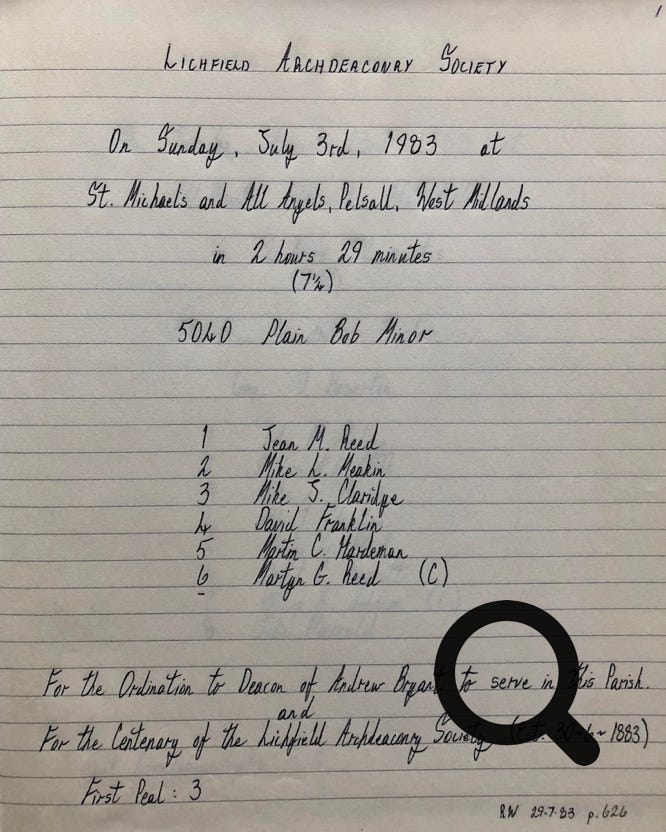 1
LICHFIELD ARCHDEACONRY SOCIETY
On Sunday, July 3rd, 1983 at
St. Michaels and All Angels, Pelsall, West Midlands
in 2 hours 29 minutes
(7¼)
5040 Plain Bob Minor
1 Jean M. Reed
2 Mike L. Meakin
3 Mike J. Claridge
4 David Franklin
5 Martin C. Hardeman
6 Martyn G. Reed (C)
For the Ordination to Deacon of Andrew Bryant to serve in this Parish.
and
For the Centenary of the Lichfield Archdeaconry Society (Est. 30~6~1883)
First Peal: 3
RW 29.7.83 p.626